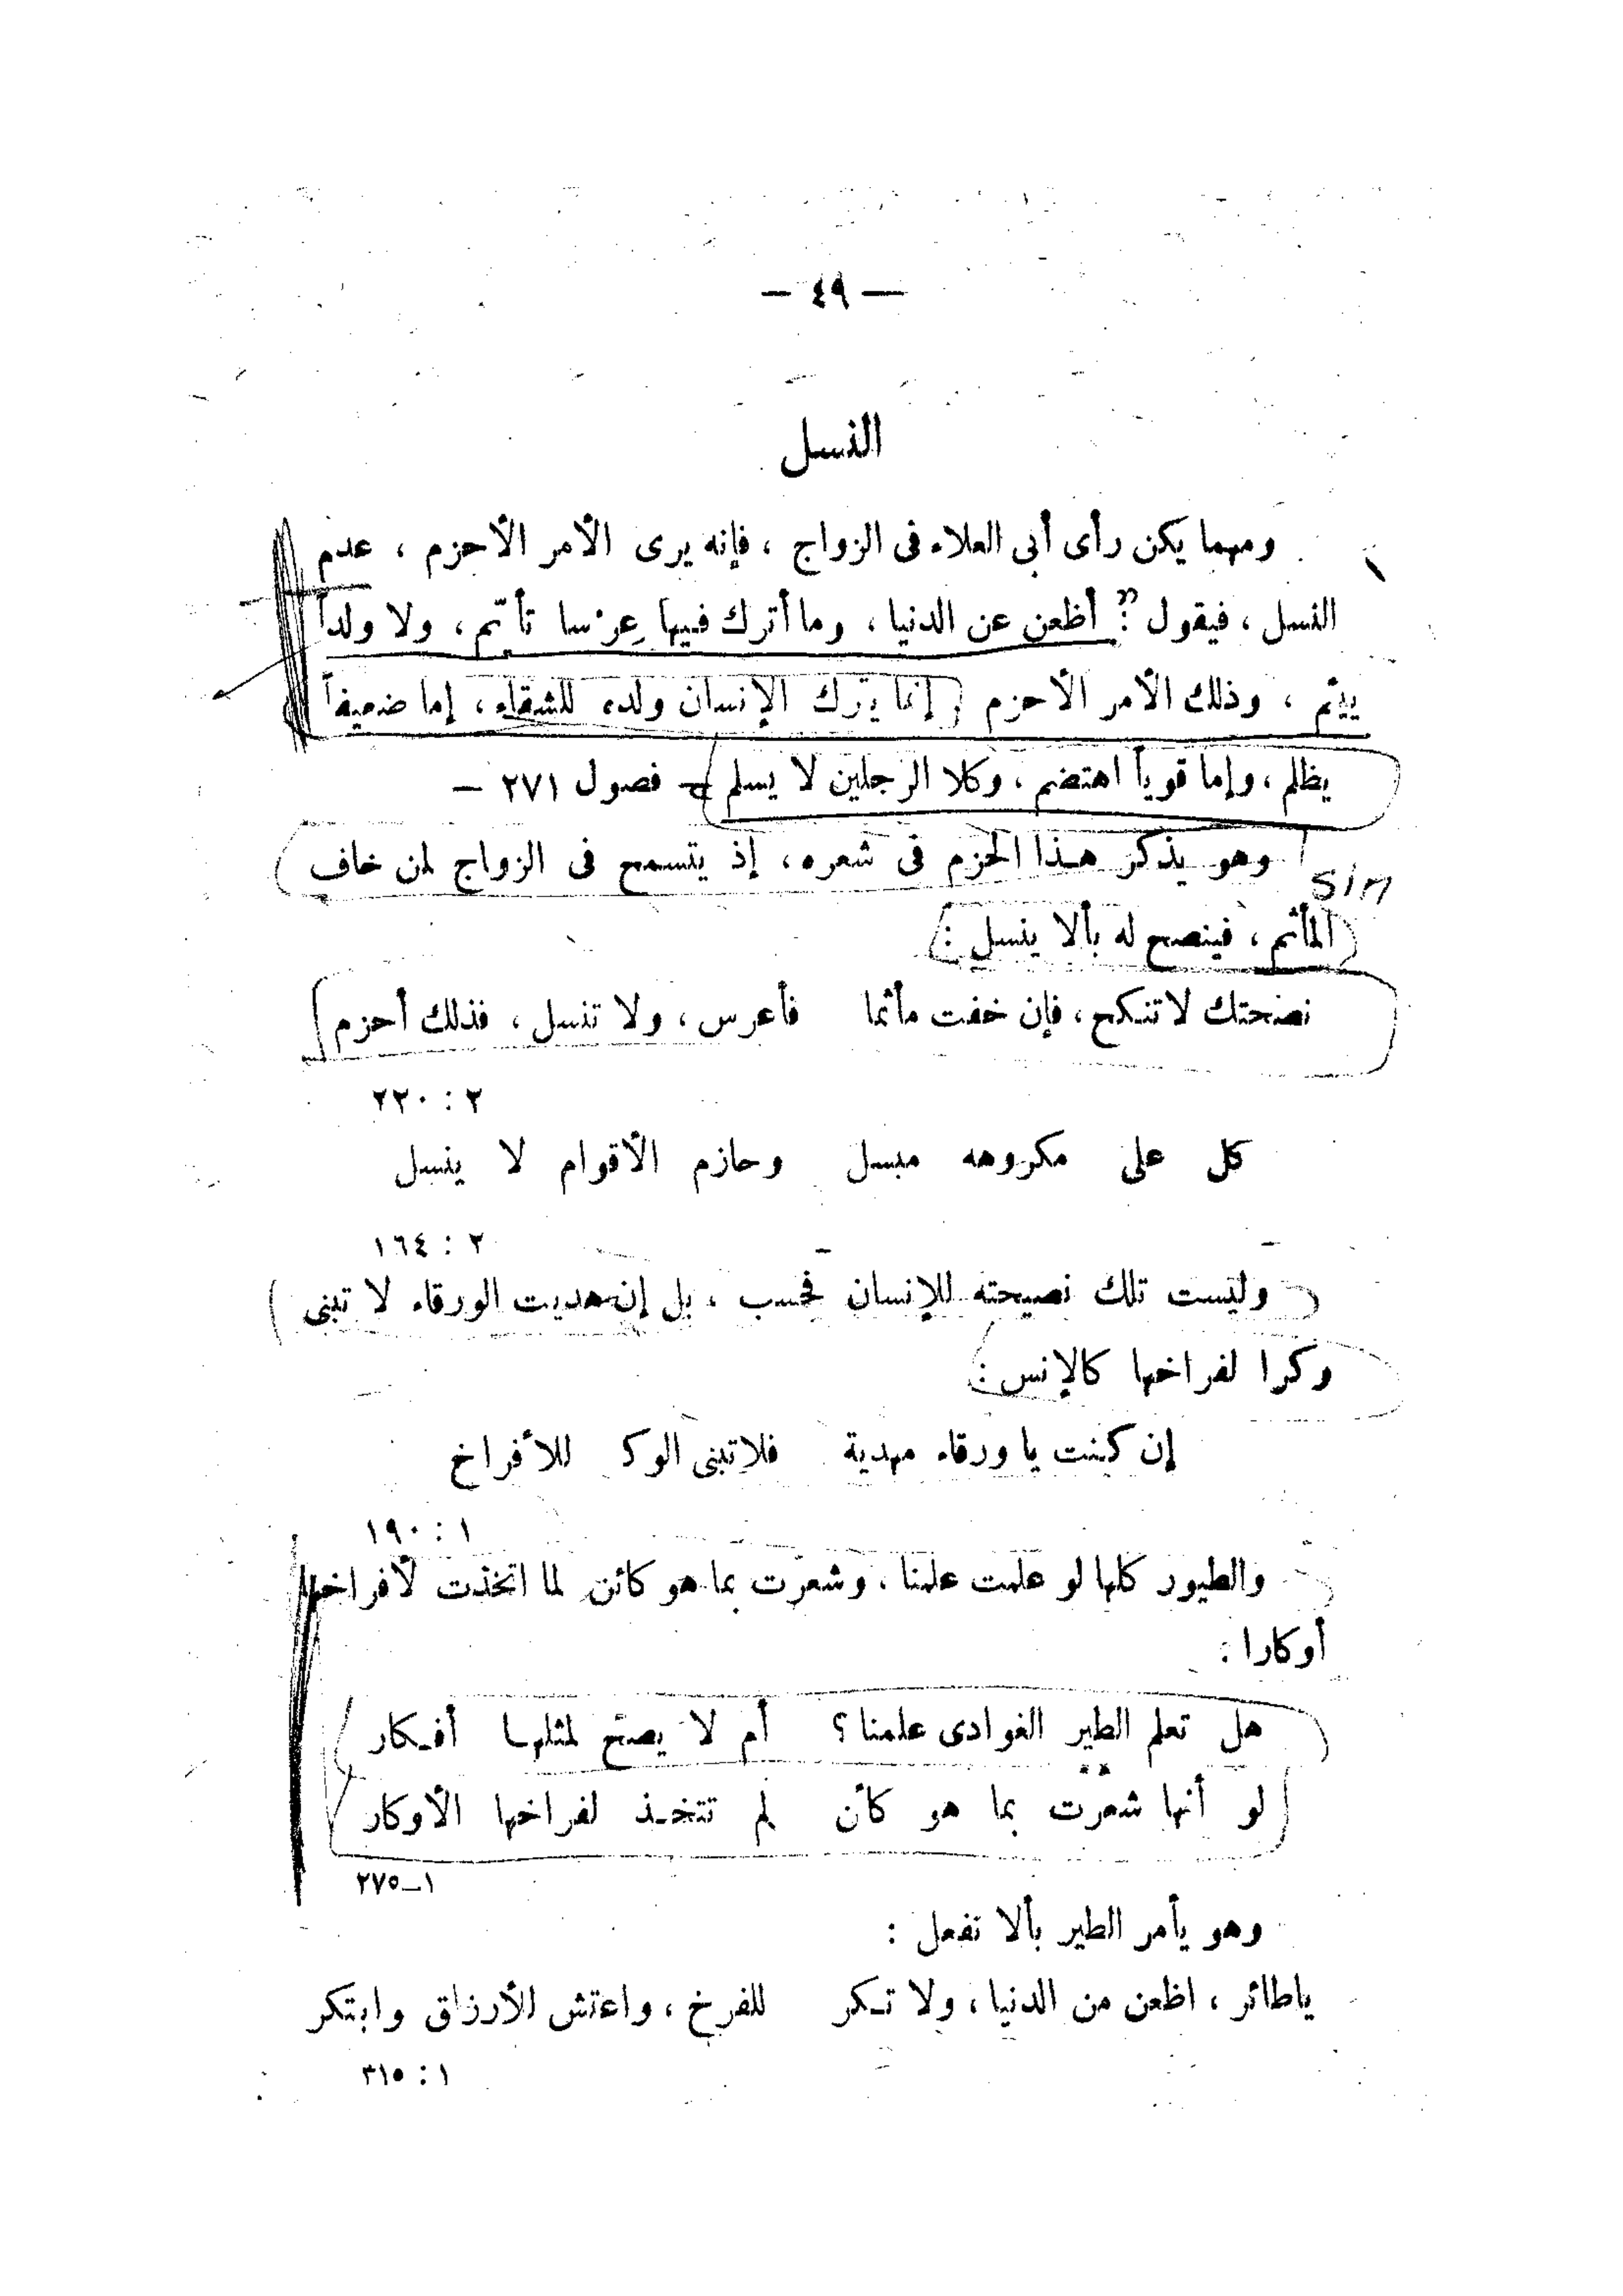 — ٤٩ —
النسل
ومهما يكن رأى أبى العلاء فى الزواج ، فإنه يرى الأمر الأحزم ، عدم
النسل ، فيقول : أظعن عن الدنيا ، وما أترك فيها عِرْسا تأتّم ، ولا ولداً
ييتم ، وذلك الأمر الأحزم ، إنما يترك الإنسان ولده للشقاء ، إما ضعيفاً
يظلم ، وإما قوياً اهتضم ، وكلا الرجلين لا يسلم — فصول ٢٧١ —
وهو يذكر هذا الحزم فى شعره ، إذ يتسمح فى الزواج لمن خاف
sin
المأثم ، فينصح له بألا ينسل :
نصحتك لا تنكح ، فإن خفت مأثما فأعرس ، ولا تنسل ، فذلك أحزم
٢ : ٢٢٠
كل على مكروهه مبسل وحازم الأقوام لا ينسل
٢ : ١٦٤
وليست تلك نصيحته للإنسان فحسب ، بل إن هديت الورقاء لا تبنى
وكرا لفراخها كالإنس :
إن كنت يا ورقاء مهدية فلا تبنى الوكر للأفراخ
١ : ١٩٠
والطيور كلها لو علمت علمنا ، وشعرت بما هو كائن لما اتخذت لأفراخها
أوكارا :
هل تعلم الطير الغوادى علمنا ؟ أم لا يصح لمثلها أفكار
لو أنها شعرت بما هو كائن لم تتخذ لفراخها الأوكار
١—٢٧٥
وهو يأمر الطير بألا تفعل :
ياطائر ، اظعن من الدنيا ، ولا تكر للفرخ ، واعتش للأرزاق وابتكر
١ : ٣١٥